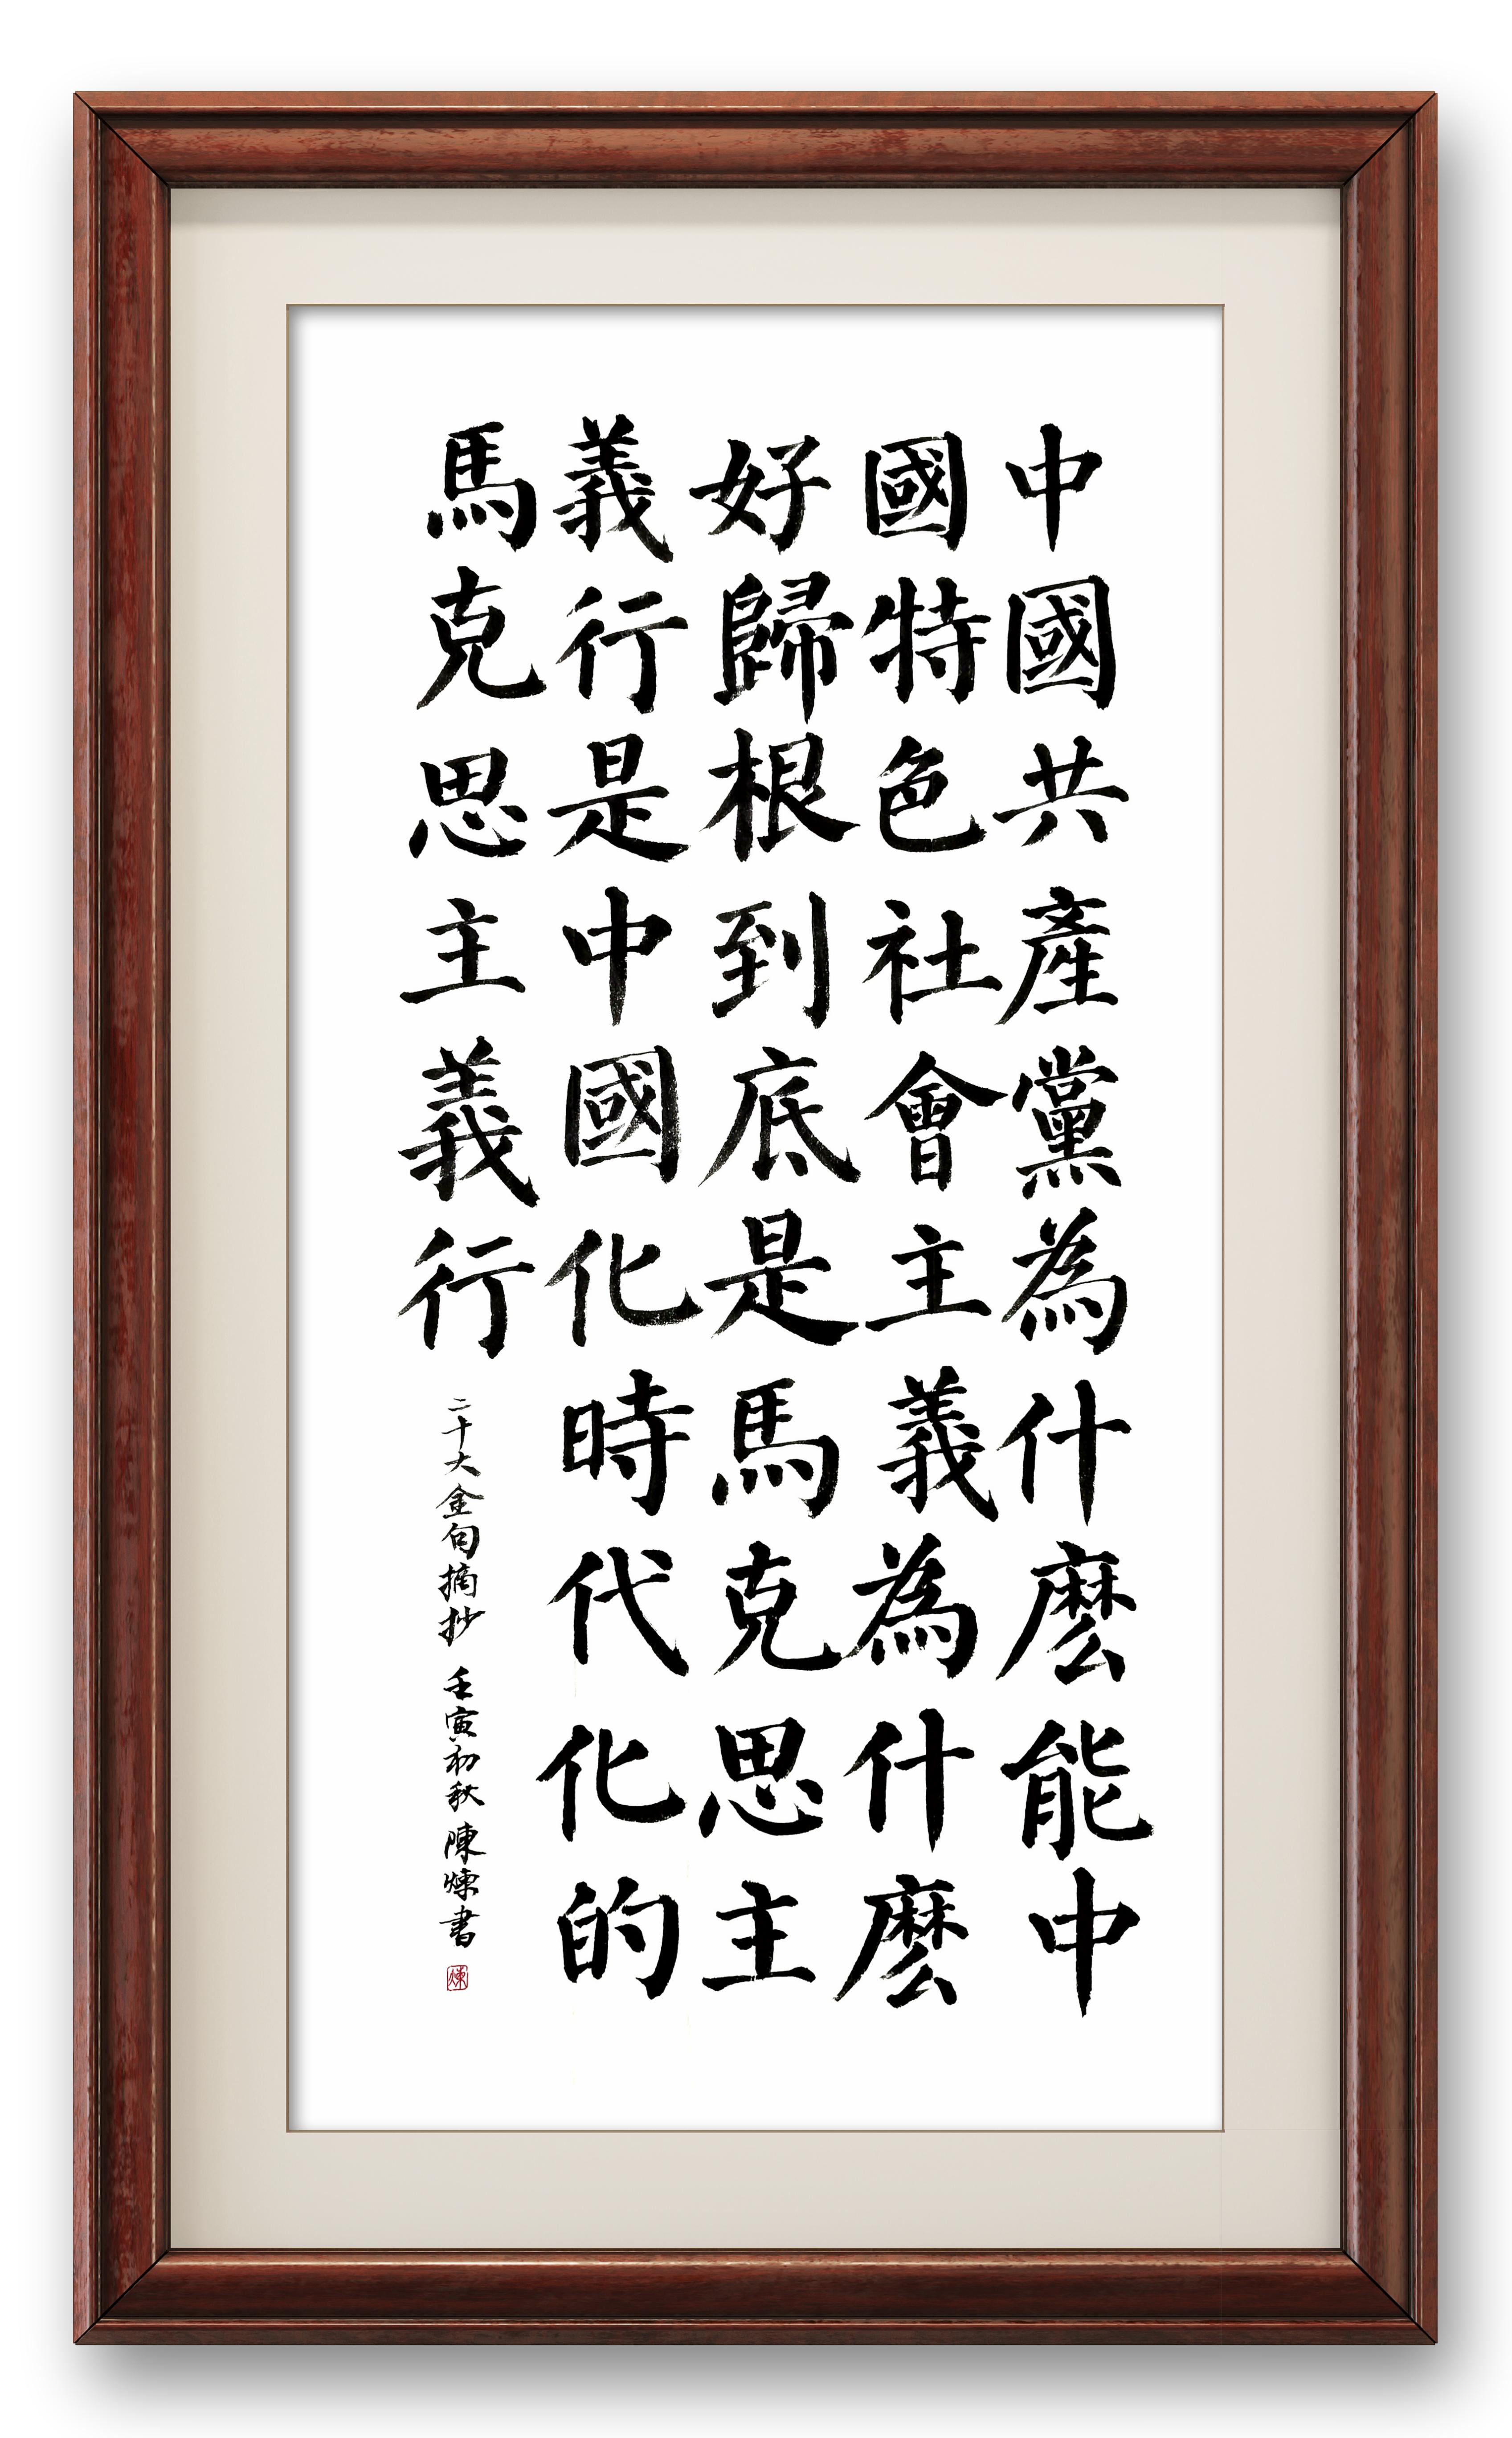 中國共產黨為什麼能中
國特色社會主義為什麼
好歸根到底是馬克思主
義行是中國化時代化的
馬克思主義行
二十大金句摘抄 壬寅初秋 陳煉書
煉